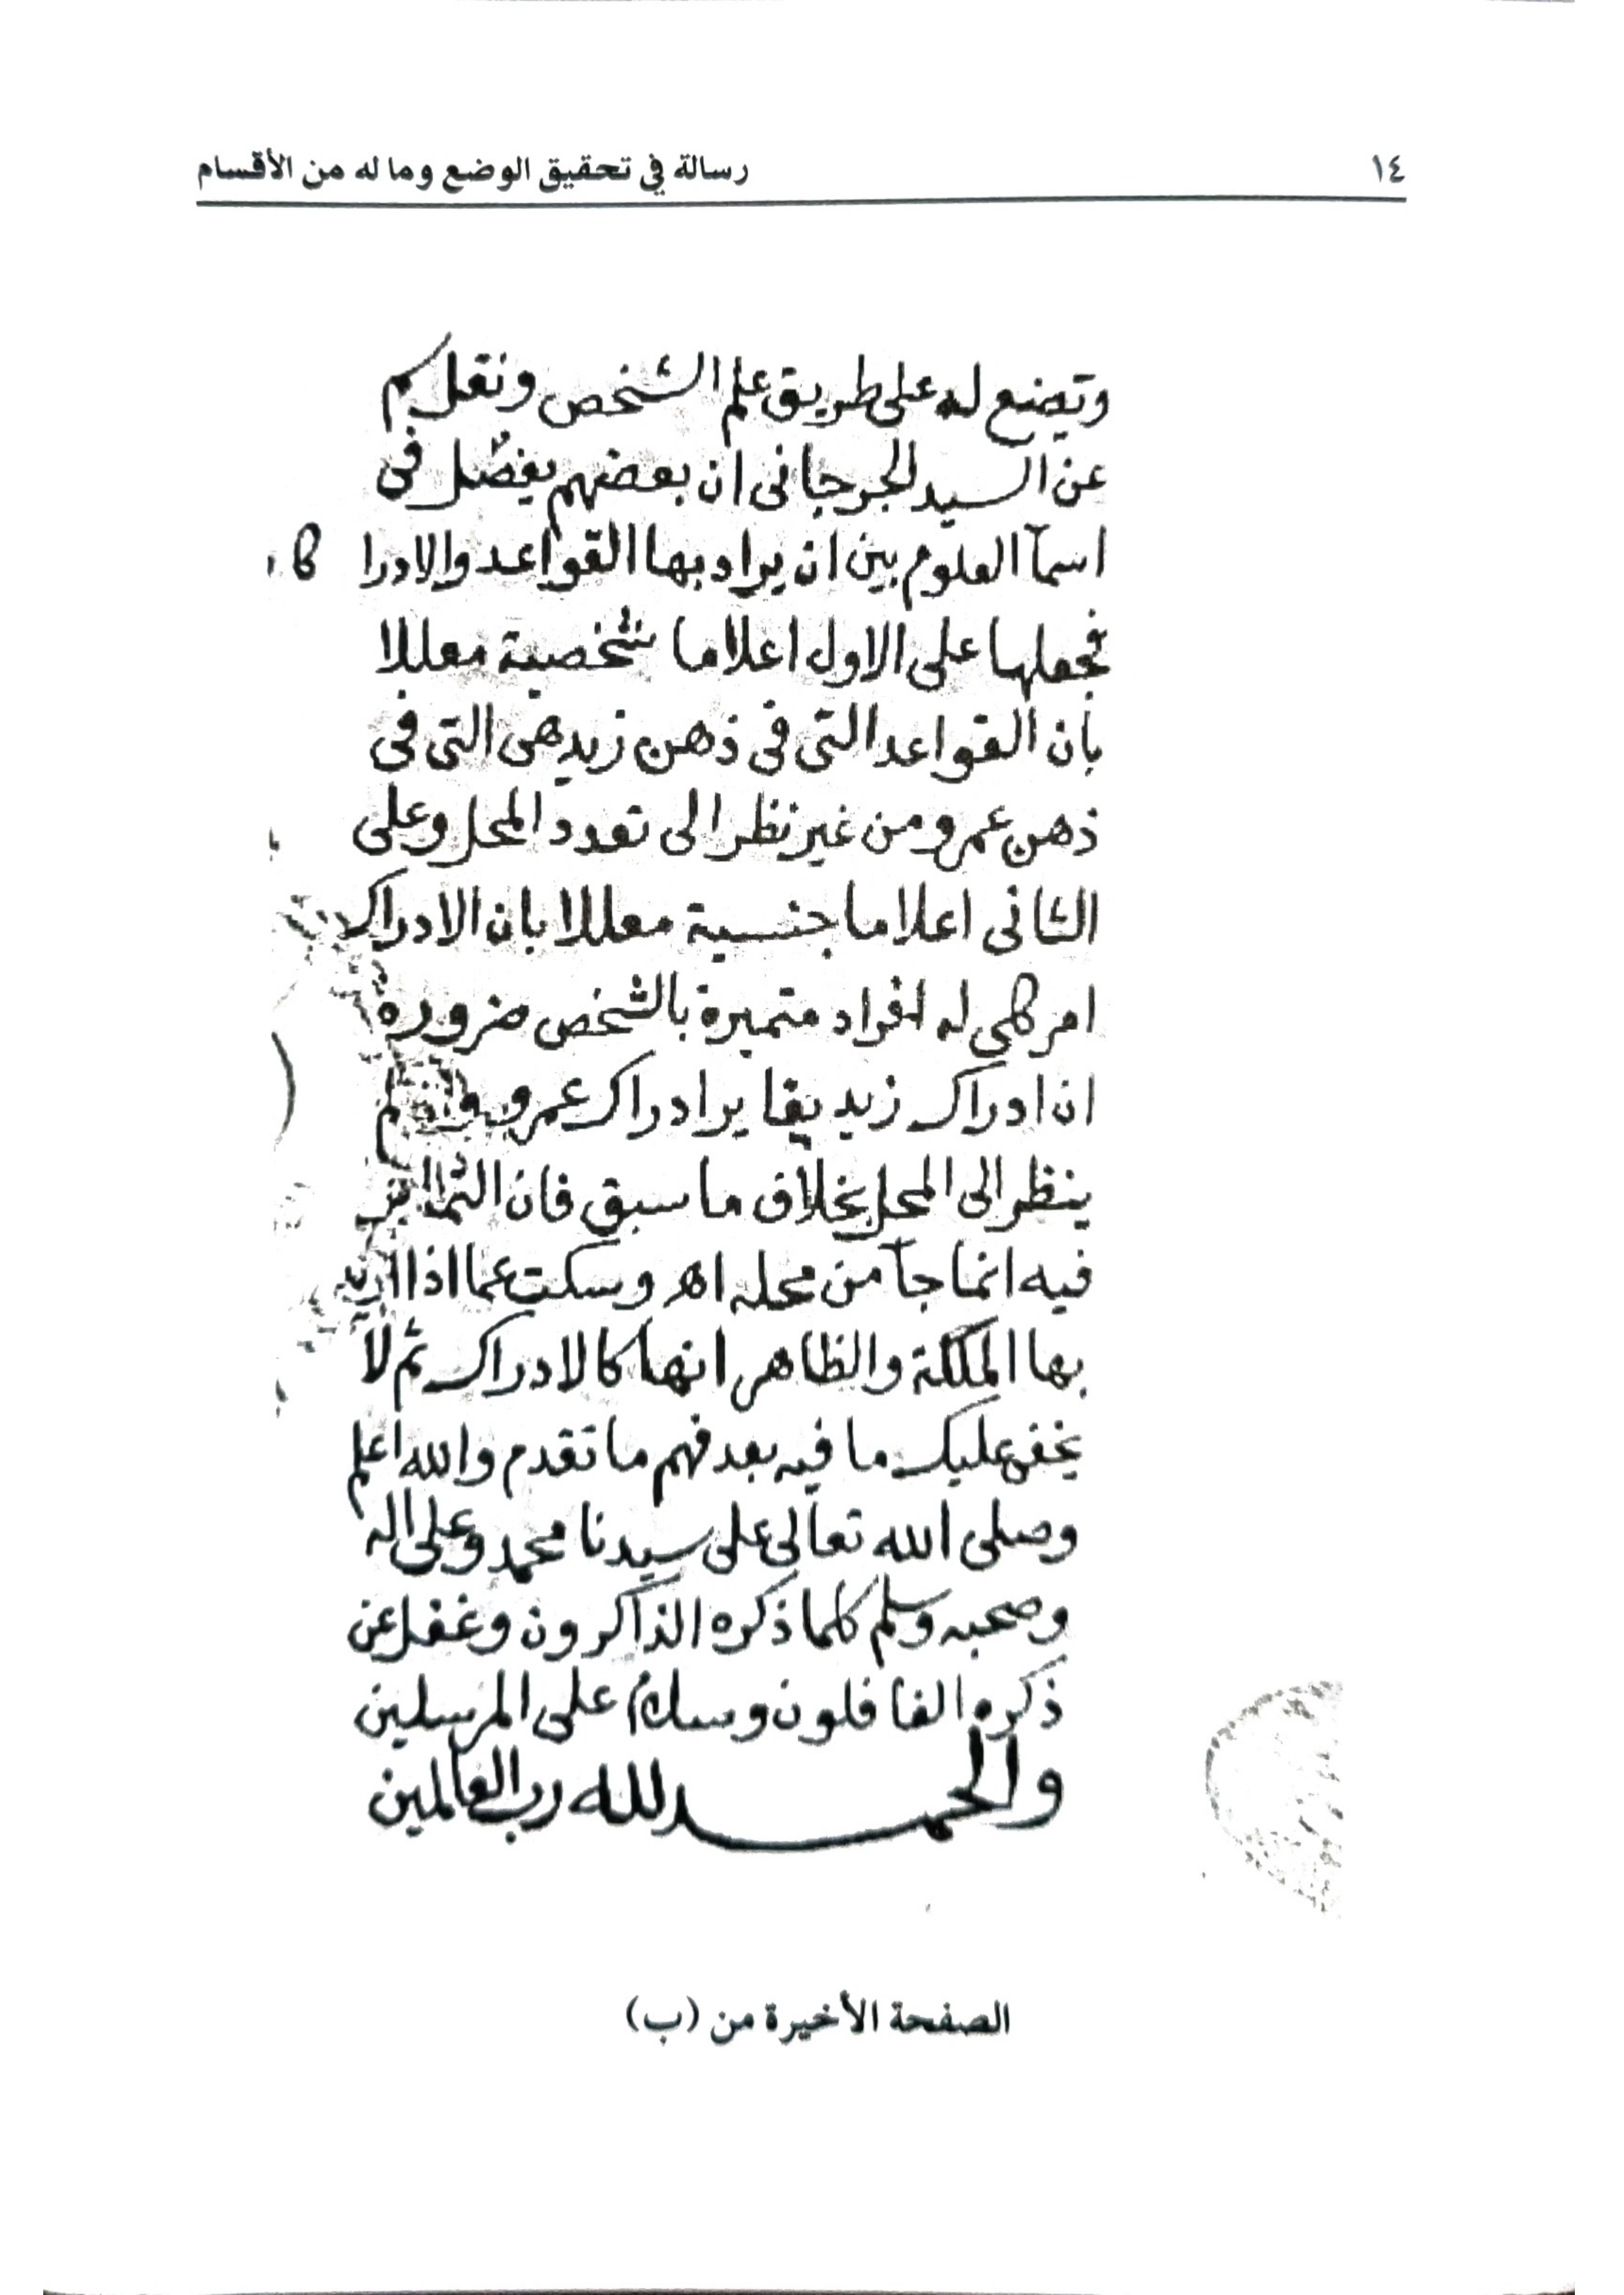 ١٤
رسالة في تحقيق الوضع وما له من الأقسام
وتضع له على طريق علم الشخص ونقل
عن السيد الجرجانى ان بعضهم يفصّل فى
اسمآ العلوم بين ان يراد بها القواعد والادرا كا
فجعلها على الاول اعلاما شخصية معللا
بأن القواعد التى فى ذهن زيد هى التى فى
ذهن عمرو من غير نظر الى تعدد المحل وعلى
الثانى اعلاما جنسية معللا بان الادراك
امر كلى له افراد متميزة بالشخص ضرورة
ان ادراك زيد يغاير ادراك عمرو
ينظر الى المحل بخلاف ما سبق فان
فيه انما جآ من محله اهـ وسكت عما اذا اريد
بها الملكة والظاهر انها كالادراك ثم لا
يخفى عليك ما فيه بعد فهم ما تقدم والله اعلم
وصلى الله تعالى على سيدنا محمد وعلى اله
وصحبه وسلم كلما ذكره الذاكرون وغفل عن
ذكره الغافلون وسلام على المرسلين
والحمد لله رب العالمين
الصفحة الأخيرة من (ب)